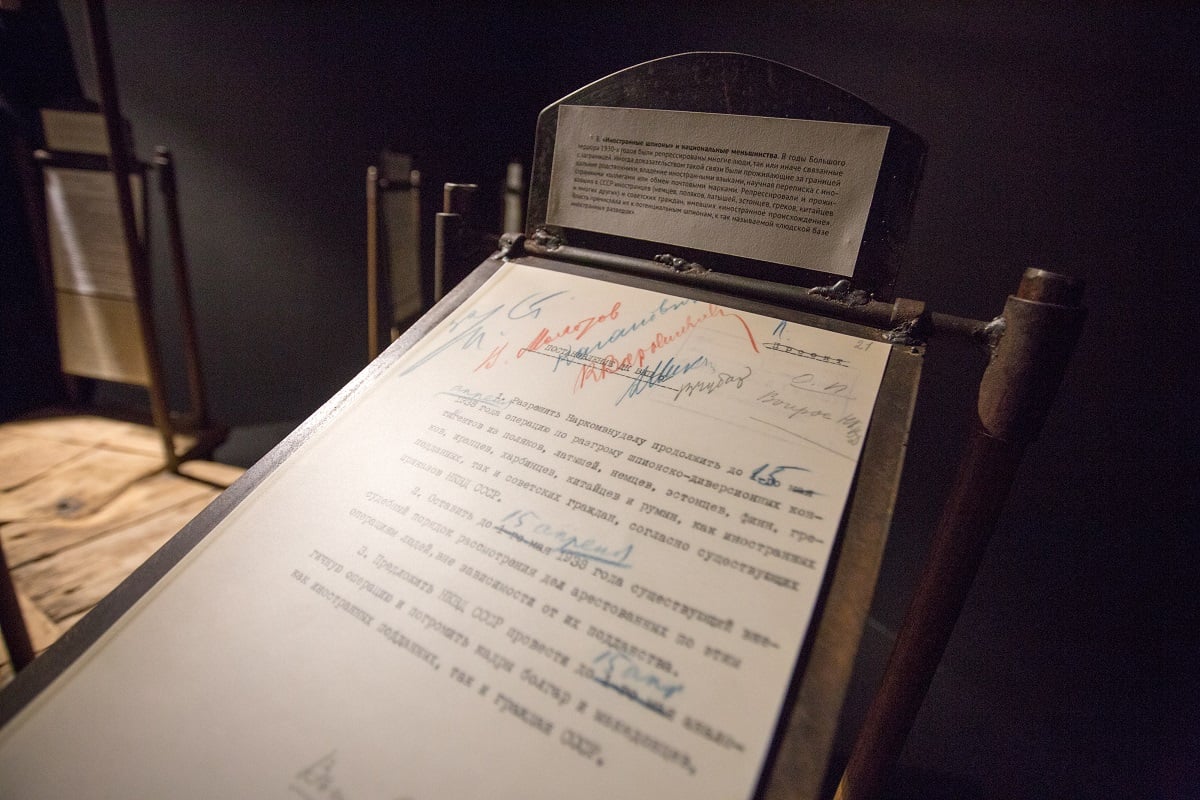 «Иностранные шпионы» и национальные меньшинства. В годы Большого
террора 1930-х годов были репрессированы многие люди, так или иначе связанные
с заграницей. Иногда доказательством такой связи были проживающие за границей
дальние родственники, владение иностранными языками, научная переписка с ино-
странными коллегами или обмен почтовыми марками. Репрессировали и прожи-
вавших в СССР иностранцев (немцев, поляков, латышей, эстонцев, греков, китайцев
и многих других) и советских граждан, имевших «иностранное происхождение».
Власть причисляла их к потенциальным шпионам, к так называемой «людской базе
иностранных разведок».
21
Молотов
Каганович
К Ворошилов
Вопрос НКВД
1. Разрешить Наркомвнуделу продолжить до 15
апреля
1938 года операцию по разгрому шпионско-диверсионных кон-
тингентов из поляков, латышей, немцев, эстонцев, финн, гре-
ков, иранцев, харбинцев, китайцев и румын, как иностранных
подданных, так и советских граждан, согласно существующих
приказов НКВД СССР.
15 апреля
2. Оставить до 1-го мая 1938 года существующий вне-
судебный порядок рассмотрения дел арестованных по этим
операциям людей, вне зависимости от их подданства.
15 апр
3. Предложить НКВД СССР провести до 1-го мая анало-
гичную операцию и погромить кадры болгар и македонцев,
как иностранных подданных, так и граждан СССР.